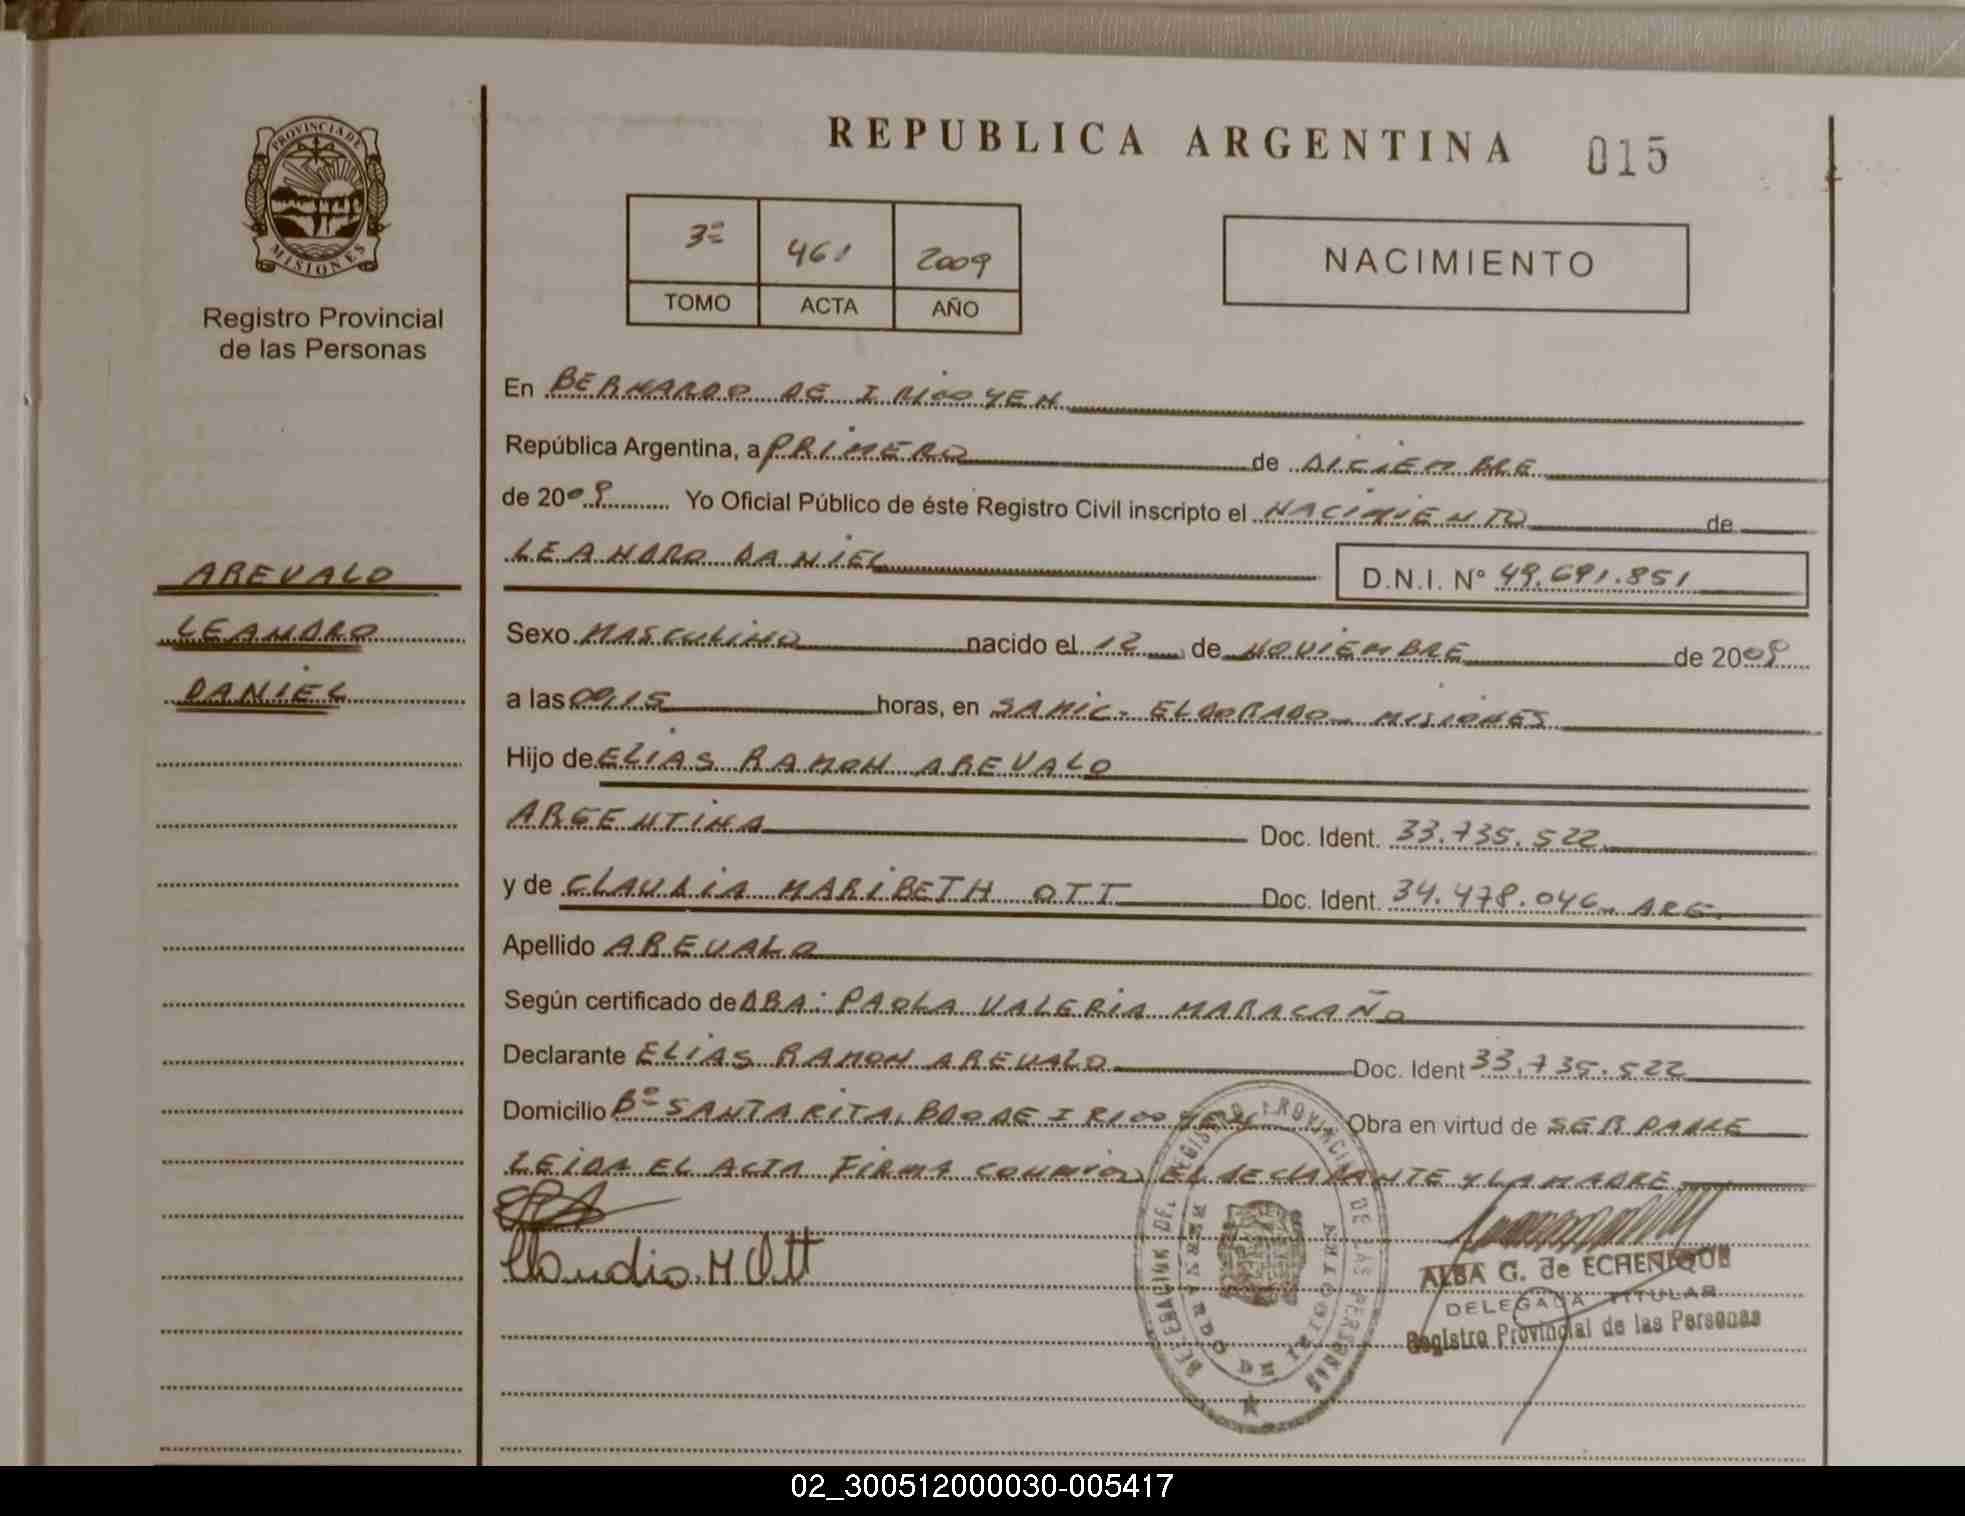 REPUBLICA ARGENTINA 015
PROVINCIA DE
MISIONES
Registro Provincial
de las Personas
3º 461 2009
TOMO ACTA AÑO
NACIMIENTO
En BERNARDO DE IRIGOYEN
República Argentina, a PRIMERO de DICIEMBRE
de 2009 Yo Oficial Público de éste Registro Civil inscripto el NACIMIENTO de
LEANDRO DANIEL D.N.I. Nº 49.691.851
AREVALO
LEANDRO
DANIEL
Sexo MASCULINO nacido el 12 de NOVIEMBRE de 2009
a las 0915 horas, en SAMIC. ELDORADO. MISIONES
Hijo de ELIAS RAMON AREVALO
ARGENTINA Doc. Ident. 33.735.522
y de CLAUDIA MARIBETH OTT Doc. Ident. 34.478.046. ARG.
Apellido AREVALO
Según certificado de DRA: PAOLA VALERIA MARACAÑO
Declarante ELIAS RAMON AREVALO Doc. Ident 33.735.522
Domicilio Bº SANTA RITA, BDO DE IRIGOYEN Obra en virtud de SER PADRE
LEIDA EL ACTA FIRMA CONMIGO EL DECLARANTE Y LA MADRE
Claudia. M Ott
REGISTRO PROVINCIAL DE LAS PERSONAS
BERNARDO DE IRIGOYEN
ALBA G. de ECHENIQUE
DELEGADA TITULAR
Registro Provincial de las Personas
02_300512000030-005417